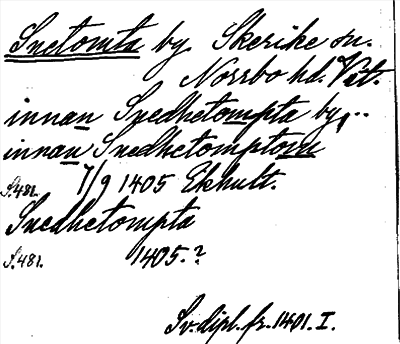 Snetomta by Skerike sn.
Norrbo hd. Vstm.
innan Snedhetompta by,..
innan Snedhetomptom
S.481. 7/9 1405 Ekhult.
Snedhetompta
S.481. 1405.?
Sv. dipl. fr. 1401. I.